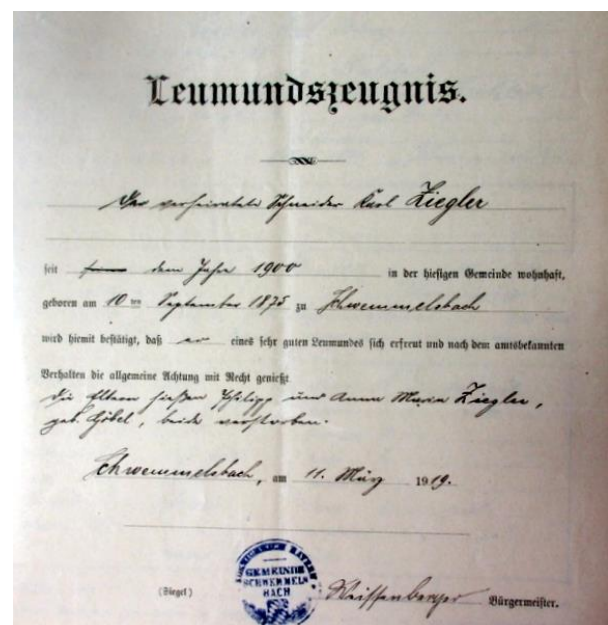 Leumundszeugnis.
Der verheiratete Schneider Karl Ziegler
seit dem Jahre 1900 in der hiesigen Gemeinde wohnhaft,
geboren am 10ten September 1875 zu Schwemmelsbach
wird hiemit bestätigt, daß er eines sehr guten Leumundes sich erfreut und nach dem amtsbekannten
Verhalten die allgemeine Achtung mit Recht genießt
Die Eltern hießen Philipp und Anna Maria Ziegler,
geb. Göbel, beide verstorben.
Schwemmelsbach, am 11. März 1919.
BAYERN
GEMEINDE
SCHWEMMELS
BACH
(Siegel) Weissenberger Bürgermeister.